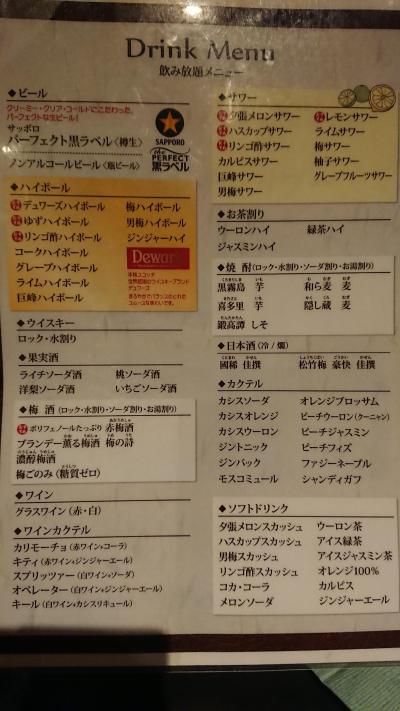 Drink Menu
飲み放題メニュー
◆ビール
クリーミー・クリア・コールドにこだわった、
パーフェクトな生ビール!
サッポロ
パーフェクト黒ラベル〈樽生〉
SAPPORO
THE PERFECT
黒ラベル
ノンアルコールビール〈瓶ビール〉
◆ハイボール
デュワーズハイボール 梅ハイボール
ゆずハイボール 男梅ハイボール
リンゴ酢ハイボール ジンジャーハイ
コークハイボール
グレープハイボール
ライムハイボール
巨峰ハイボール
Dewar's
◆ウイスキー
ロック・水割り
◆果実酒
ライチソーダ酒 桃ソーダ酒
洋梨ソーダ酒 いちごソーダ酒
◆梅 酒(ロック・水割り・ソーダ割り・お湯割り)
ポリフェノールたっぷり 赤梅酒
ブランデー薫る梅酒 梅の詩
濃醇梅酒
梅ごのみ(糖質ゼロ)
◆ワイン
グラスワイン(赤・白)
◆ワインカクテル
カリモーチョ(赤ワイン+コーラ)
キティ(赤ワイン+ジンジャーエール)
スプリッツァー(白ワイン+ソーダ)
オペレーター(白ワイン+ジンジャーエール)
キール(白ワイン+カシスリキュール)
◆サワー
夕張メロンサワー レモンサワー
ハスカップサワー ライムサワー
リンゴ酢サワー 梅サワー
カルピスサワー 柚子サワー
巨峰サワー グレープフルーツサワー
男梅サワー
◆お茶割り
ウーロンハイ 緑茶ハイ
ジャスミンハイ
◆焼 酎(ロック・水割り・ソーダ割り・お湯割り)
黒霧島 芋 和ら麦 麦
喜多里 芋 隠し蔵 麦
鍛高譚 しそ
◆日本酒(冷/燗)
國稀 佳撰 松竹梅 豪快 佳撰
◆カクテル
カシスソーダ オレンジブロッサム
カシスオレンジ ピーチウーロン(クーニャン)
カシスウーロン ピーチジャスミン
ジントニック ピーチフィズ
ジンバック ファジーネーブル
モスコミュール シャンディガフ
◆ソフトドリンク
夕張メロンスカッシュ ウーロン茶
ハスカップスカッシュ アイス緑茶
男梅スカッシュ アイスジャスミン茶
リンゴ酢スカッシュ オレンジ100%
コカ・コーラ カルピス
メロンソーダ ジンジャーエール